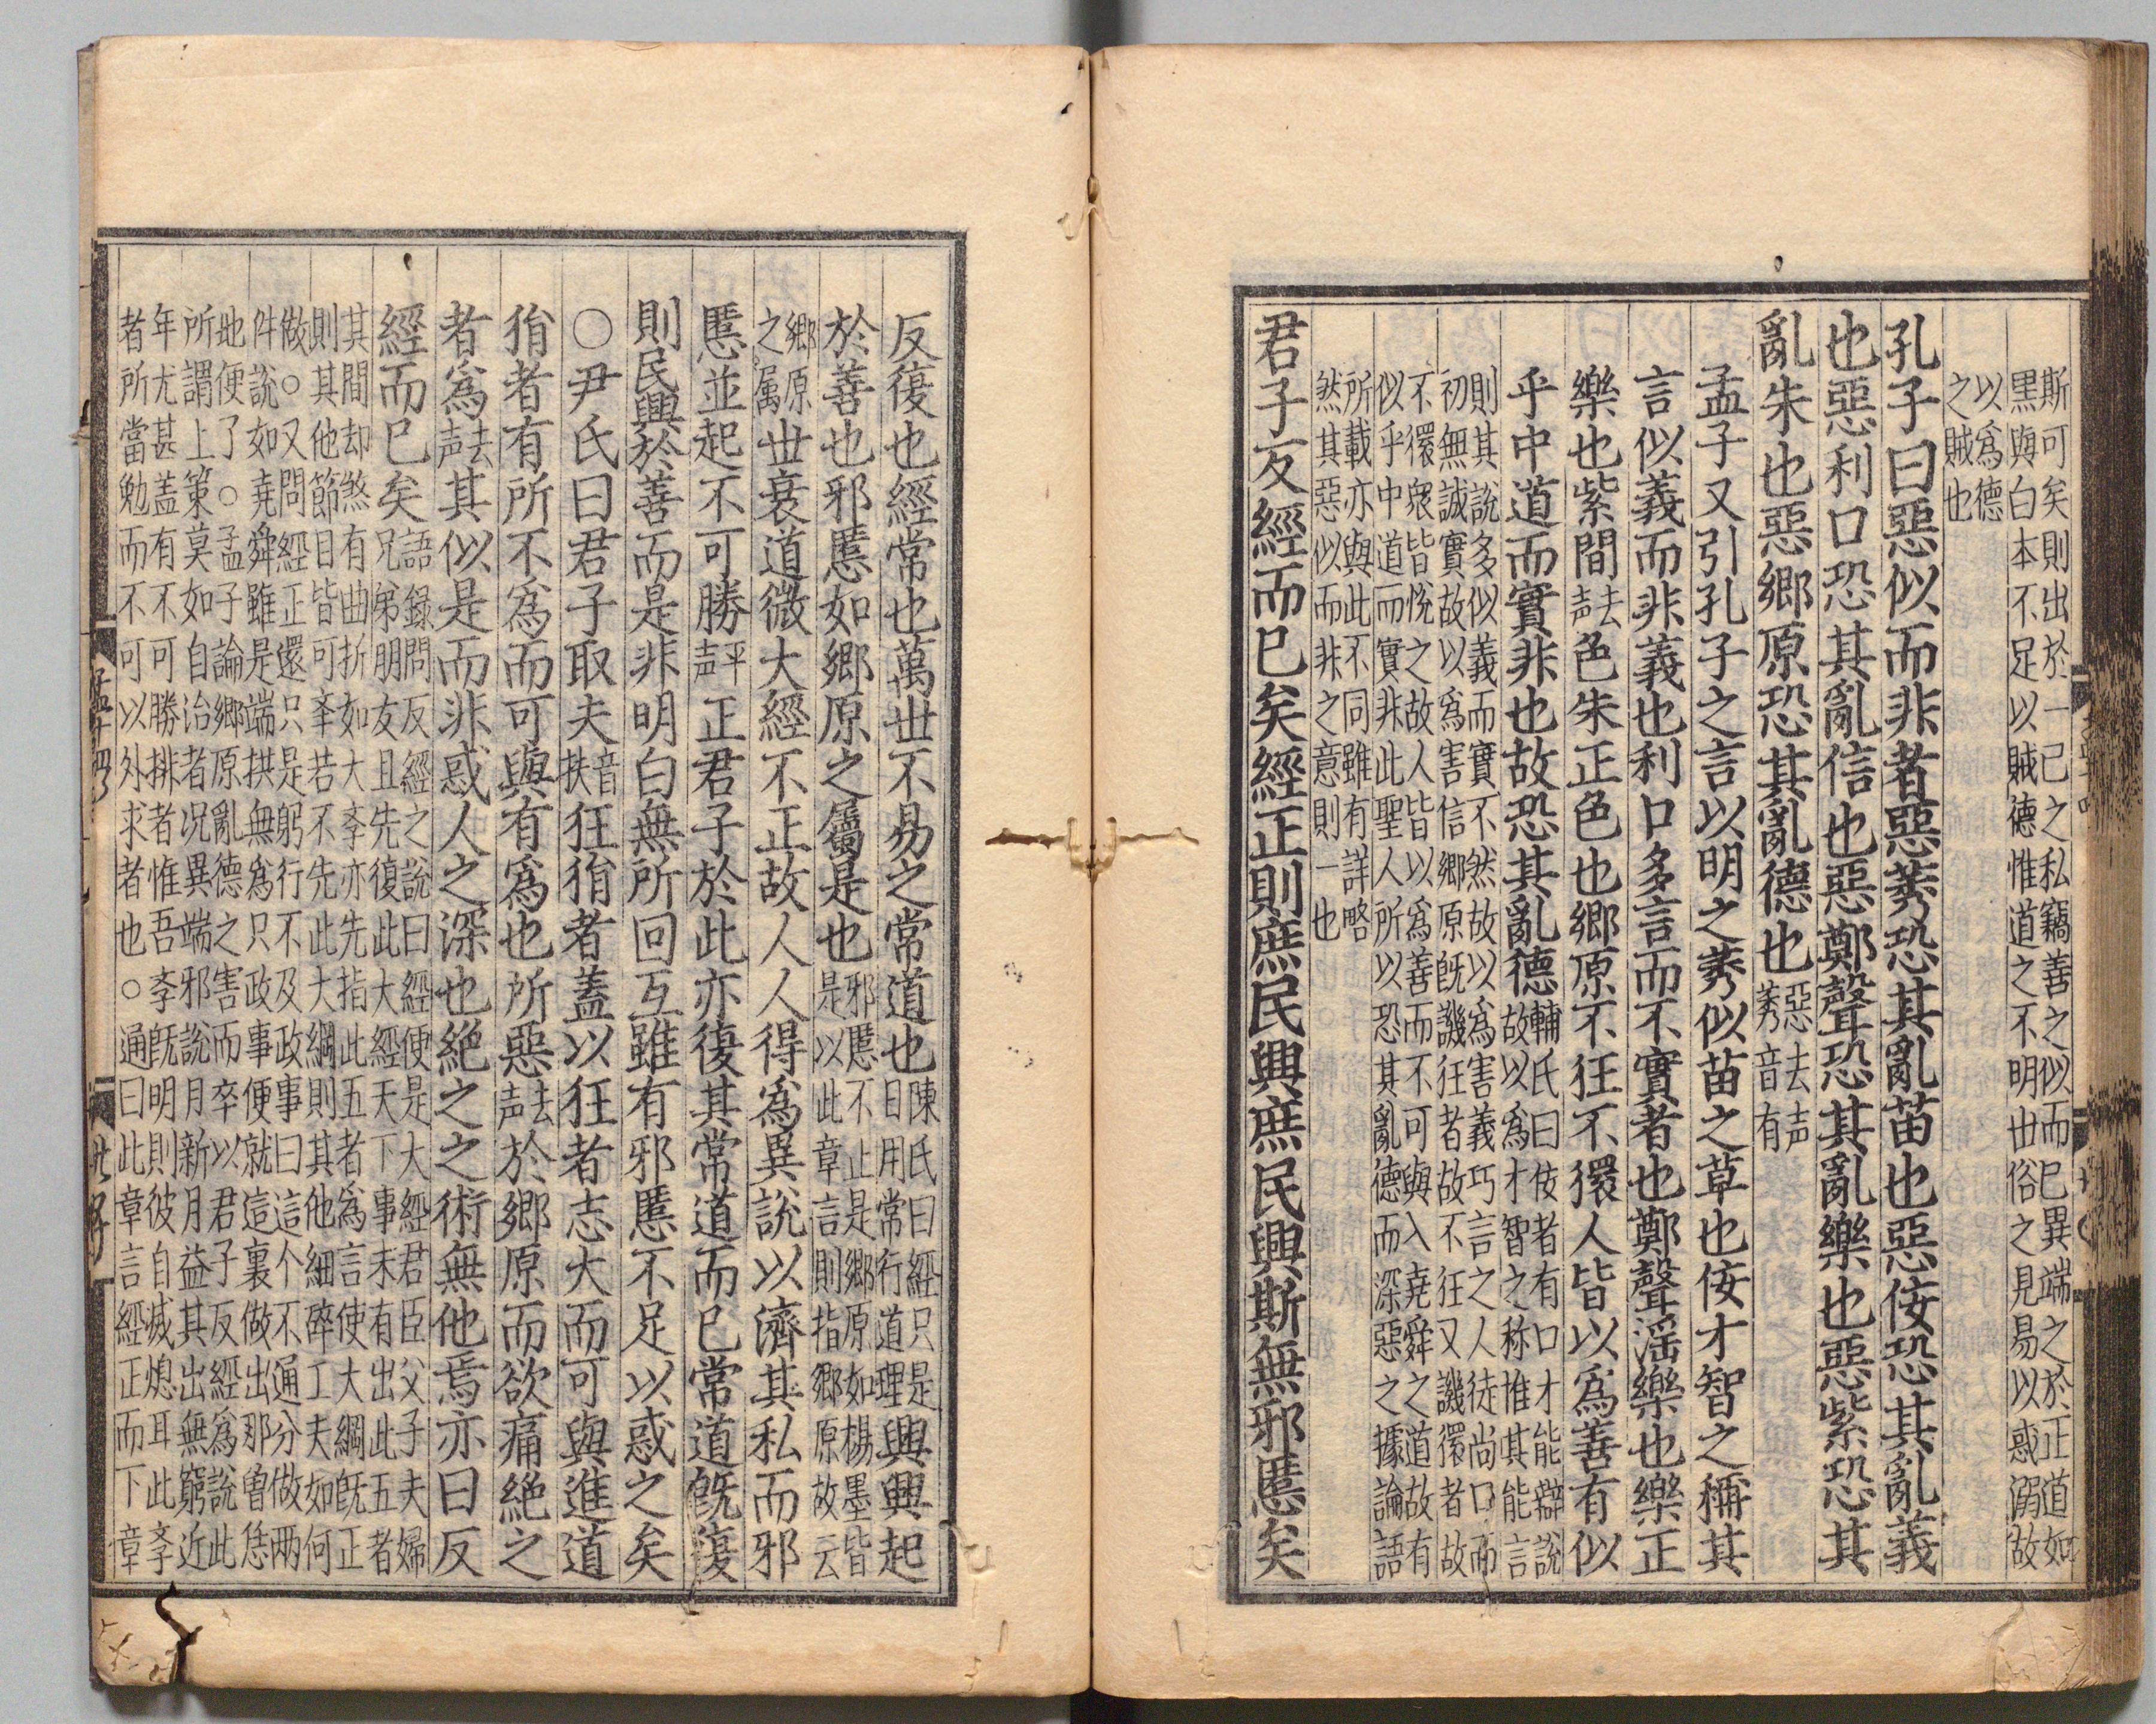 斯可矣則出於一已之私竊善之似而已異端之於正道如
黒與白本不足以賊德惟道之不明世俗之見易以惑溺故
以爲德
之賊也
孔子曰惡似而非者惡莠恐其亂苗也惡佞恐其亂義
也惡利口恐其亂信也惡鄭聲恐其亂樂也惡紫恐其
亂朱也惡鄉原恐其亂德也惡去声莠音有
孟子又引孔子之言以明之莠似苗之草也佞才智之稱其
言似義而非義也利口多言而不實者也鄭聲淫樂也樂正
樂也紫間去声色朱正色也鄉原不狂不獧人皆以爲善有似
乎中道而實非也故恐其亂德輔氏曰佞者有口才能辯說故以爲才智之称惟其能言
則其說多似義而實不然故以爲害義巧言之人徒尚口而
初無誠實故以爲害信鄉原旣譏狂者故不狂又譏獧者故
不獧衆皆悅之故人皆以爲善而不可與入堯舜之道故有
似乎中道而實非此聖人所以恐其亂德而深惡之據論語
所載亦與此不同雖有詳略
然其惡似而非之意則一也
君子反經而已矣經正則庶民興庶民興斯無邪慝矣
反復也經常也萬世不易之常道也陳氏曰經只是日用常行道理興興起
於善也邪慝如鄉原之屬是也邪慝不止是鄉原如楊墨皆是以此章言則指鄉原故云
鄉原之属世衰道微大經不正故人人得爲異說以濟其私而邪
慝並起不可勝平声正君子於此亦復其常道而已常道旣復
則民興於善而是非明白無所回互雖有邪慝不足以惑之矣
○尹氏曰君子取夫音扶狂狷者蓋以狂者志大而可與進道
狷者有所不爲而可與有爲也所惡去声於鄉原而欲痛絕之
者爲去声其似是而非惑人之深也絕之之術無他焉亦曰反
經而已矣語錄問反經之說曰經便是大經君臣父子夫婦兄弟朋友且先復此大經天下事未有出此五者
其間却煞有曲折如大孝亦先指此五者爲言使大綱旣正
則其他節目皆可孝若不先此大綱則其他細碎工夫如何
做○又問經正還只是躬行不及政事曰這个不通分做兩
件說如堯舜雖是端拱無爲只政事便就這裏做出那曾恁
地便了○孟子論鄉原亂德之害而卒以君子反經爲說此
所謂上策莫如自治者况異端邪說月新月益其出無窮近
年尤甚盖有不可勝排者惟吾孝旣明則彼自滅熄耳此孝
者所當勉而不可以外求者也○通曰此章言經正而下章